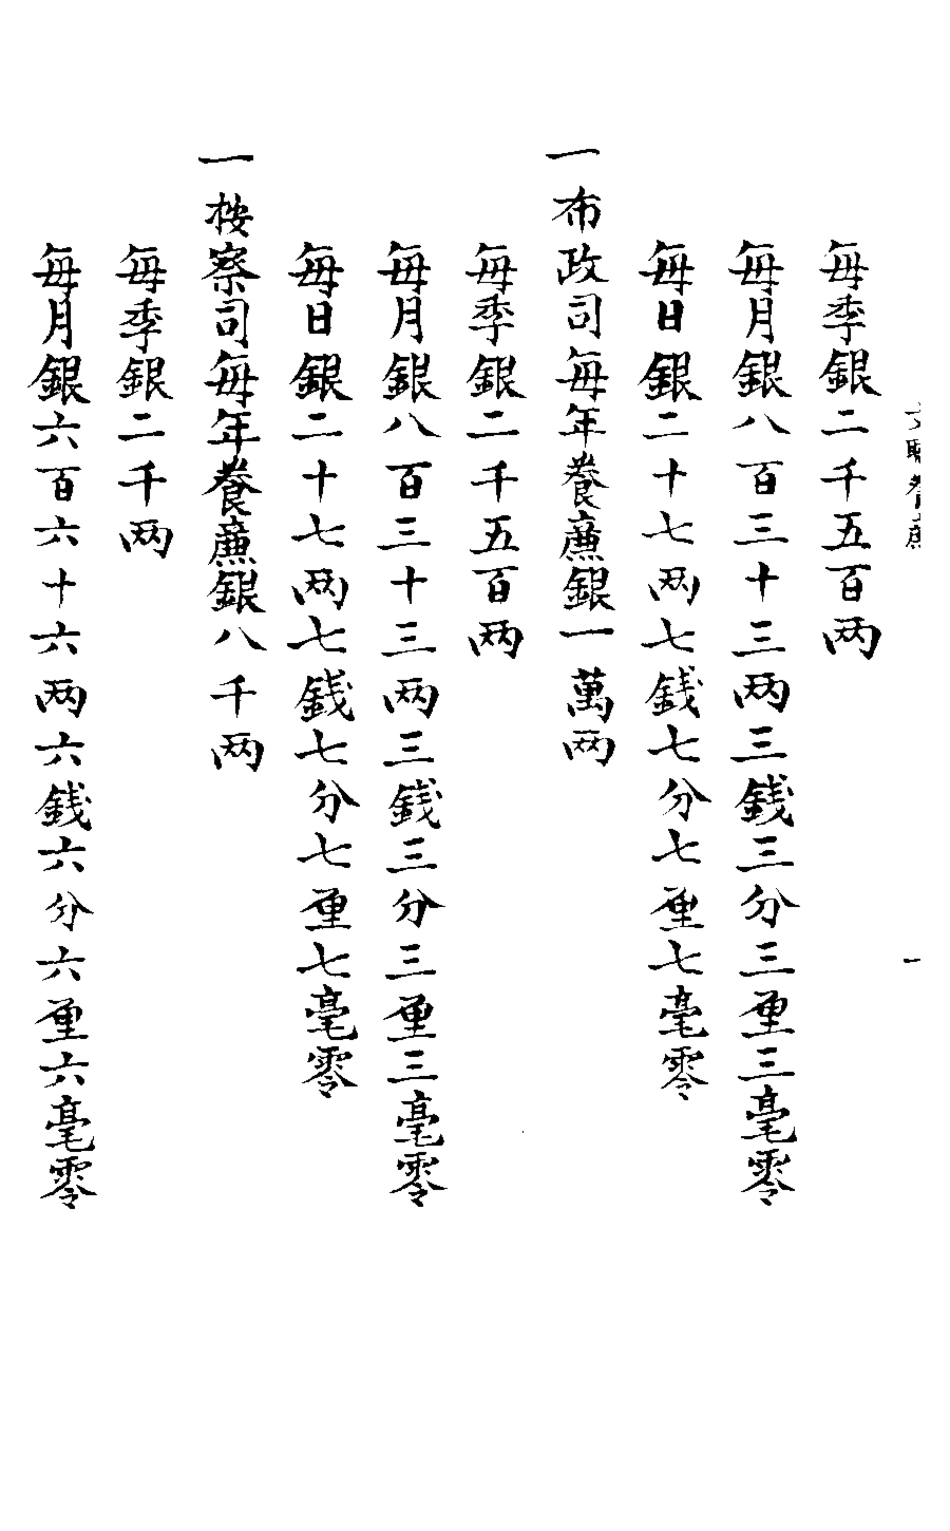 文職養廉 一
每季銀二千五百两
每月銀八百三十三两三錢三分三厘三毫零
每日銀二十七两七錢七分七厘七毫零
一布政司每年養廉銀一萬两
每季銀二千五百两
每月銀八百三十三两三錢三分三厘三毫零
每日銀二十七两七錢七分七厘七毫零
一按察司每年養廉銀八千两
每季銀二千两
每月銀六百六十六两六錢六分六厘六毫零